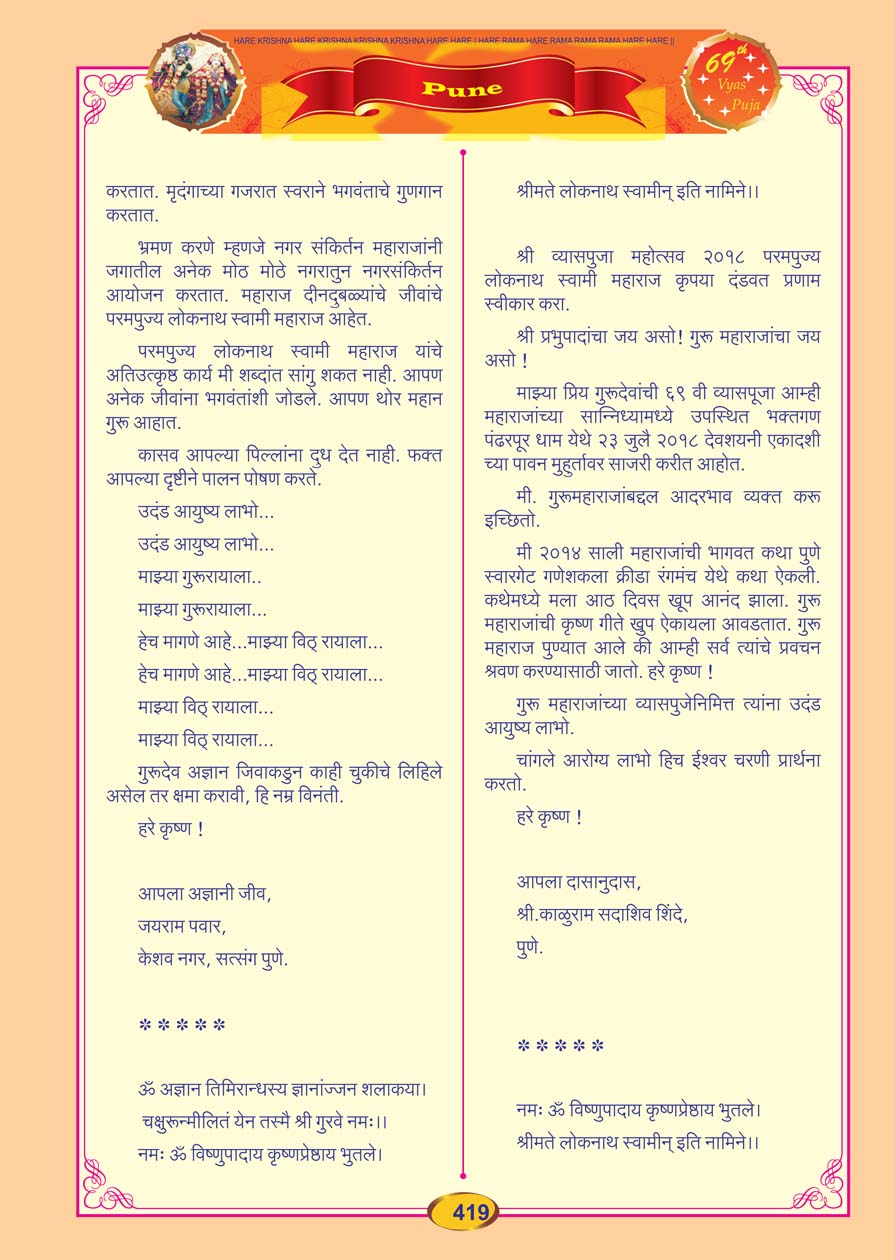 HARE KRISHNA HARE KRISHNA KRISHNA KRISHNA HARE HARE | HARE RAMA HARE RAMA RAMA RAMA HARE HARE ||
Pune
69th
Vyas
Puja
करतात. मृदंगाच्या गजरात स्वराने भगवंताचे गुणगान
करतात.
भ्रमण करणे म्हणजे नगर संकिर्तन महाराजांनी
जगातील अनेक मोठ मोठे नगरातुन नगरसंकिर्तन
आयोजन करतात. महाराज दीनदुबळ्यांचे जीवांचे
परमपुज्य लोकनाथ स्वामी महाराज आहेत.
परमपुज्य लोकनाथ स्वामी महाराज यांचे
अतिउत्कृष्ठ कार्य मी शब्दांत सांगु शकत नाही. आपण
अनेक जीवांना भगवंतांशी जोडले. आपण थोर महान
गुरू आहात.
कासव आपल्या पिल्लांना दुध देत नाही. फक्त
आपल्या दृष्टीने पालन पोषण करते.
उदंड आयुष्य लाभो...
उदंड आयुष्य लाभो...
माझ्या गुरूरायाला..
माझ्या गुरूरायाला...
हेच मागणे आहे...माझ्या विठ् रायाला...
हेच मागणे आहे...माझ्या विठ् रायाला...
माझ्या विठ् रायाला...
माझ्या विठ् रायाला...
गुरूदेव अज्ञान जिवाकडुन काही चुकीचे लिहिले
असेल तर क्षमा करावी, हि नम्र विनंती.
हरे कृष्ण !
आपला अज्ञानी जीव,
जयराम पवार,
केशव नगर, सत्संग पुणे.
* * * * *
ॐ अज्ञान तिमिरान्धस्य ज्ञानांज्जन शलाकया।
चक्षुरून्मीलितं येन तस्मै श्री गुरवे नमः।।
नमः ॐ विष्णुपादाय कृष्णप्रेष्ठाय भुतले।
श्रीमते लोकनाथ स्वामीन् इति नामिने।।
श्री व्यासपुजा महोत्सव २०१८ परमपुज्य
लोकनाथ स्वामी महाराज कृपया दंडवत प्रणाम
स्वीकार करा.
श्री प्रभुपादांचा जय असो! गुरू महाराजांचा जय
असो !
माझ्या प्रिय गुरूदेवांची ६९ वी व्यासपूजा आम्ही
महाराजांच्या सान्निध्यामध्ये उपस्थित भक्तगण
पंढरपूर धाम येथे २३ जुलै २०१८ देवशयनी एकादशी
च्या पावन मुहुर्तावर साजरी करीत आहोत.
मी. गुरूमहाराजांबद्दल आदरभाव व्यक्त करू
इच्छितो.
मी २०१४ साली महाराजांची भागवत कथा पुणे
स्वारगेट गणेशकला क्रीडा रंगमंच येथे कथा ऐकली.
कथेमध्ये मला आठ दिवस खूप आनंद झाला. गुरू
महाराजांची कृष्ण गीते खुप ऐकायला आवडतात. गुरू
महाराज पुण्यात आले की आम्ही सर्व त्यांचे प्रवचन
श्रवण करण्यासाठी जातो. हरे कृष्ण !
गुरू महाराजांच्या व्यासपुजेनिमित्त त्यांना उदंड
आयुष्य लाभो.
चांगले आरोग्य लाभो हिच ईश्वर चरणी प्रार्थना
करतो.
हरे कृष्ण !
आपला दासानुदास,
श्री.काळुराम सदाशिव शिंदे,
पुणे.
* * * * *
नमः ॐ विष्णुपादाय कृष्णप्रेष्ठाय भुतले।
श्रीमते लोकनाथ स्वामीन् इति नामिने।।
419